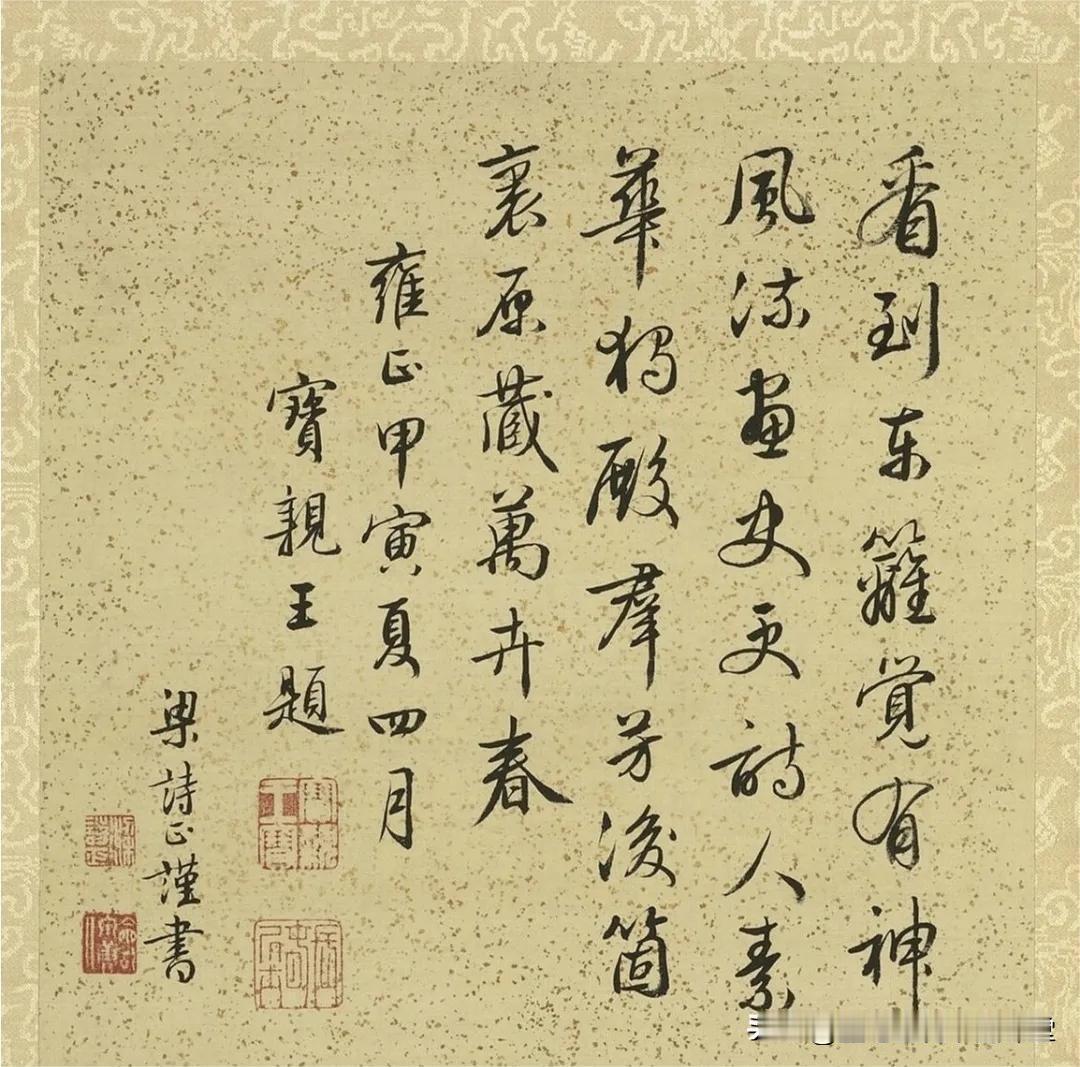 看到東籬覺有神
風流畫史更詩人素
華獨殿羣芳後箇
裏原藏萬卉春
雍正甲寅夏四月
寶親王題
梁詩正謹書